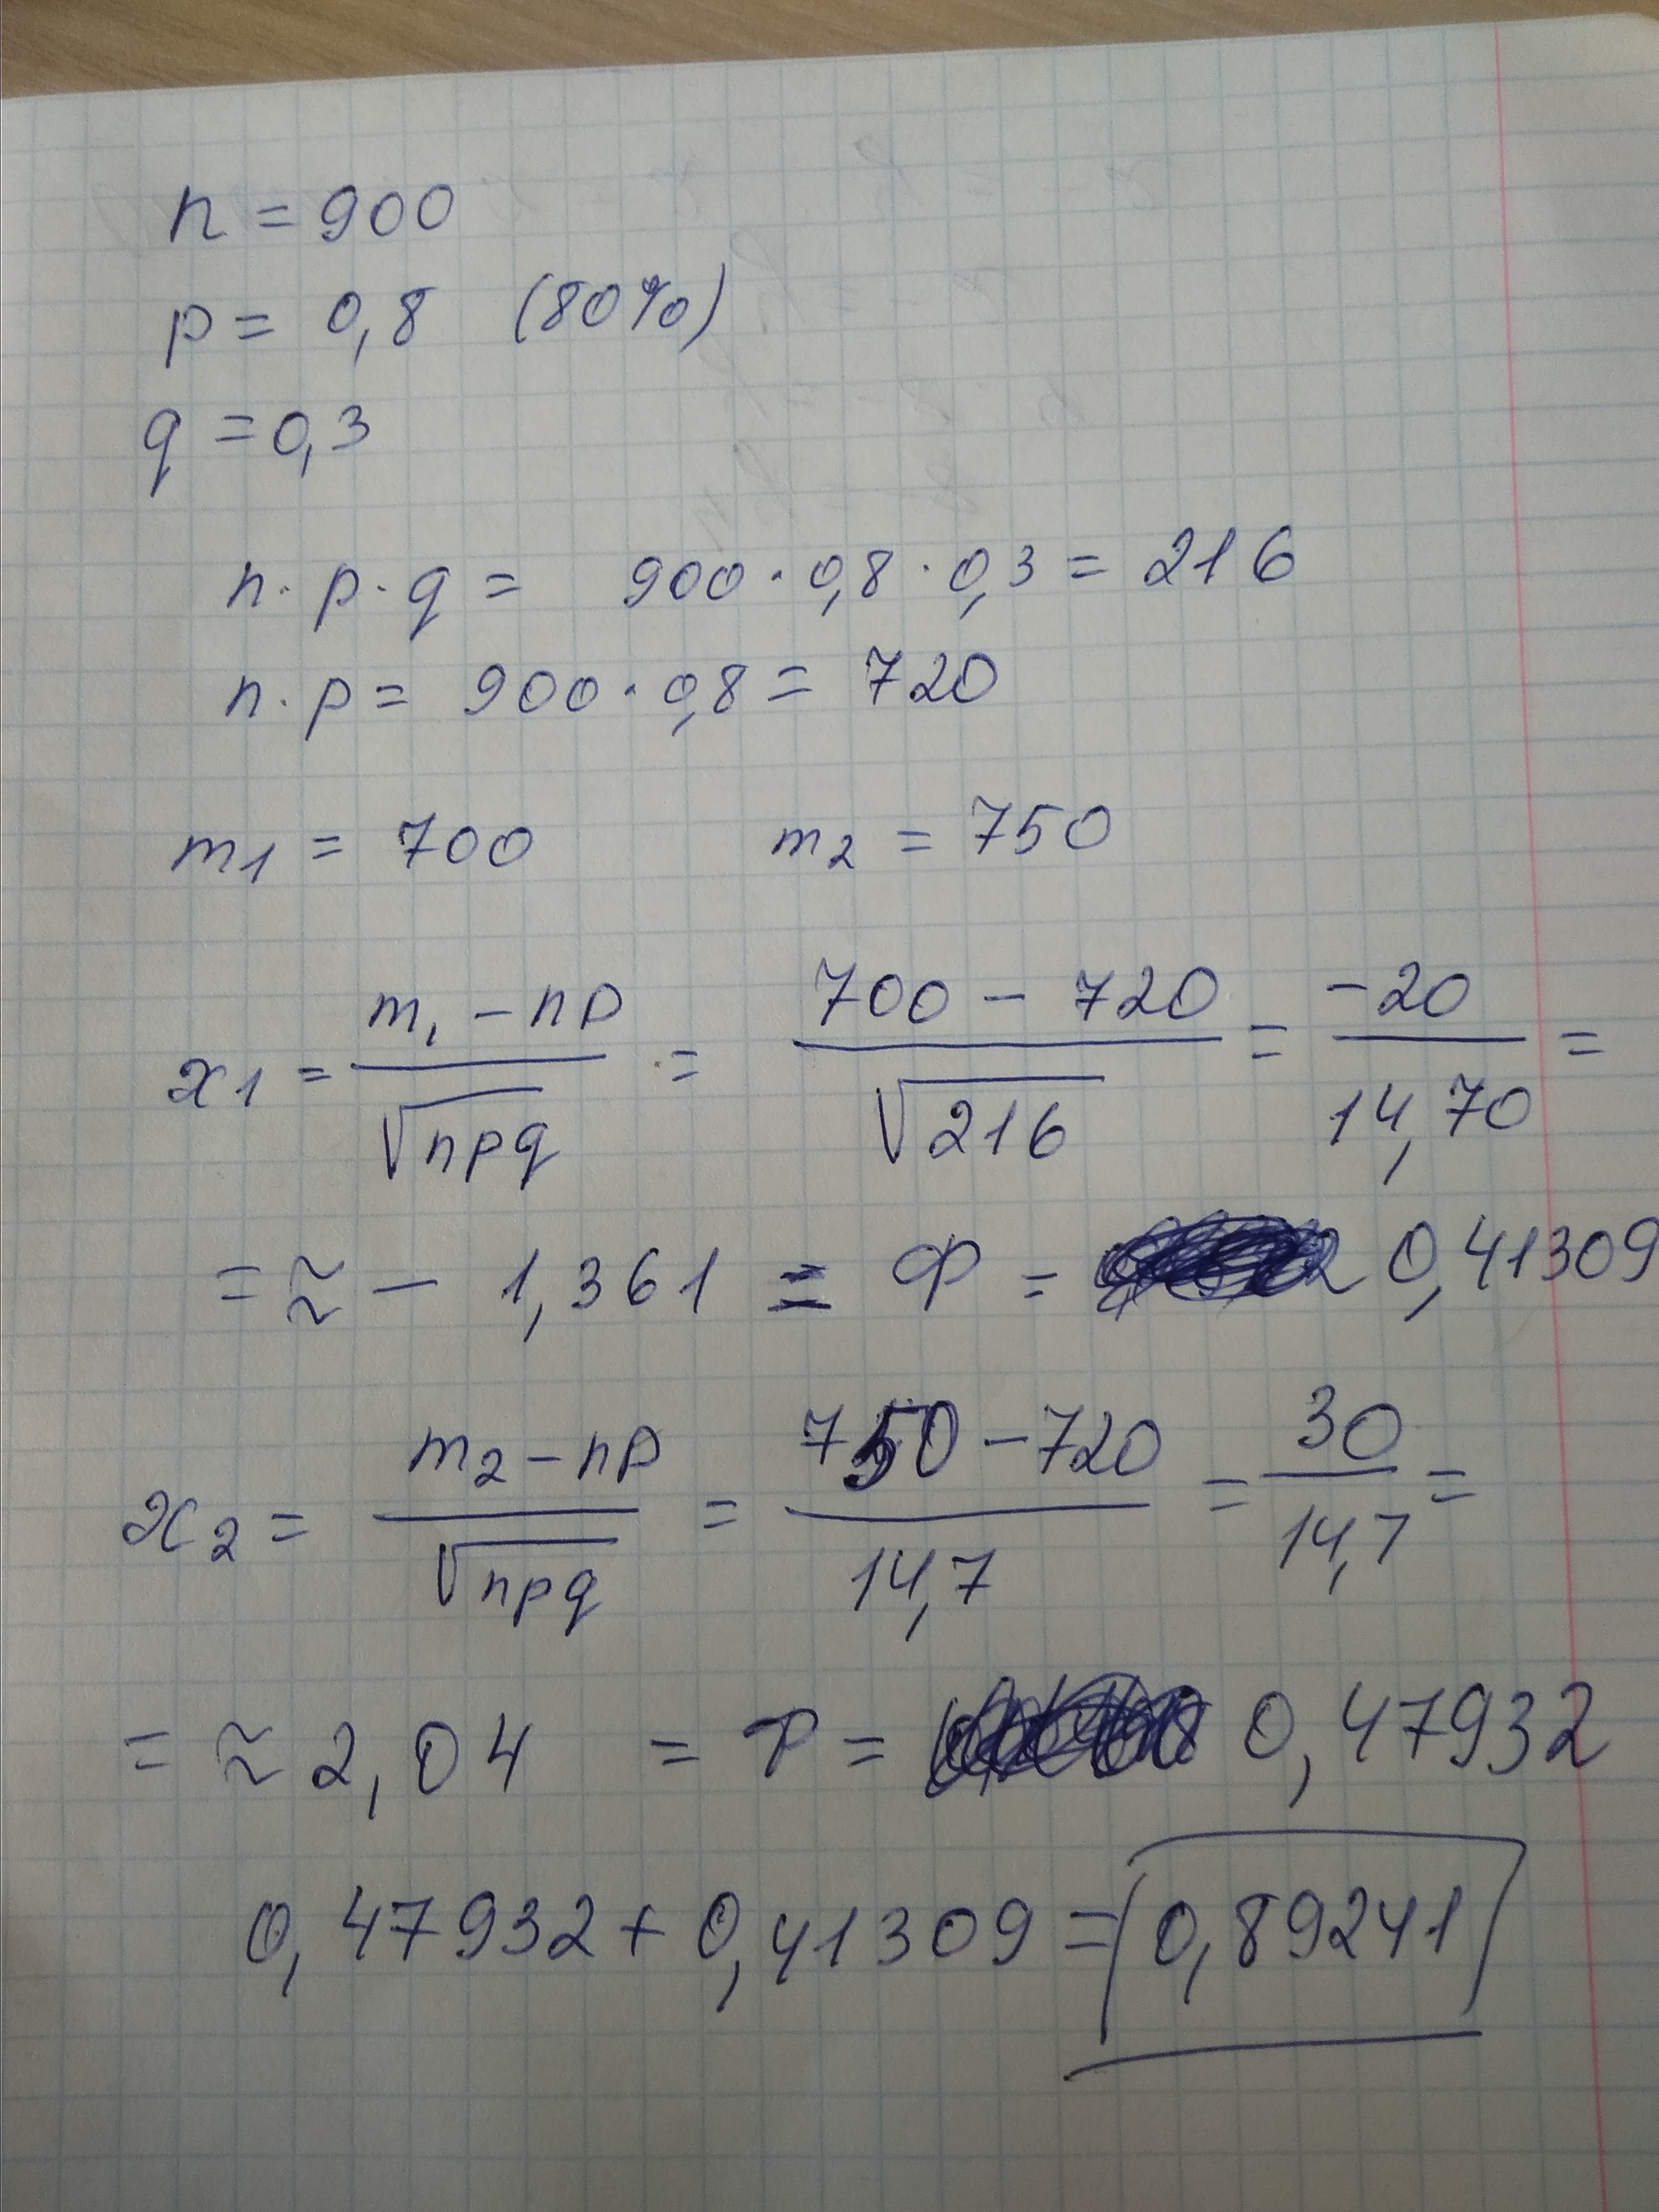 n = 900
p = 0,8 (80%)
q = 0,3
n · p · q = 900 · 0,8 · 0,3 = 216
n · p = 900 · 0,8 = 720
m1 = 700 m2 = 750
x1 = (m1 - np) / √npq = (700 - 720) / √216 = -20 / 14,70 =
= ≈ - 1,361 = Ф = 0,41309
x2 = (m2 - np) / √npq = (750 - 720) / 14,7 = 30 / 14,7 =
= ≈ 2,04 = Ф = 0,47932
0,47932 + 0,41309 = 0,89241